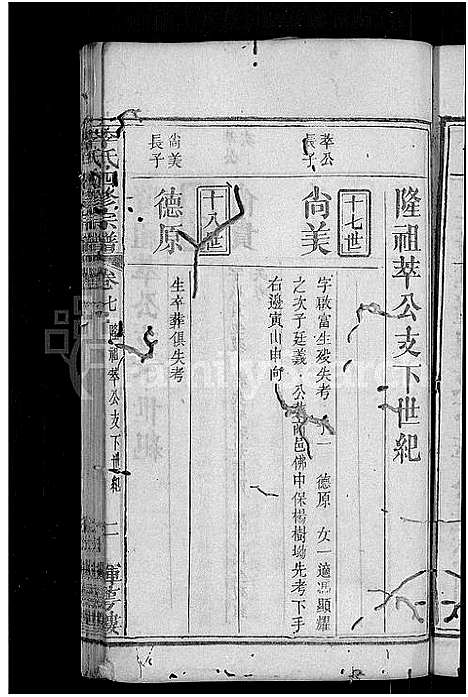 隆祖萃公支下世紀
十七世
萃公
長子
尚美
字啟富生歿失考 一 德原 女一適馮顯耀
之次子廷義 公葬 邑佛中保楊樹坳先考下手
右邊寅山申向
十八世
尚美
長子
德原
生卒葬俱失考
氏四修宗譜
卷七
隆祖萃公支下世紀
一